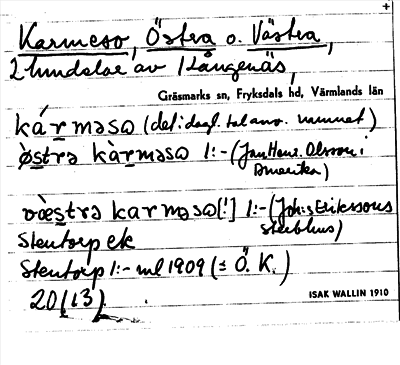 +
Karmeso, Östra o. Västra,
2 lundelar av Kångenäs,
Gräsmarks sn, Fryksdals hd, Värmlands län
kármәsɷ (det: dagl. tal anv. namnet)
ɷ̀stra kàrmәsɷ 1:- (Jan Henr. Olsson i
Amerika)
væ̀stra karmәsɷ[!] 1:- (Joh:s Erikssons
sterbhus)
Stentorp ek
Stentorp 1:- ml 1909 (= Ö. K.)
20/(13)
ISAK WALLIN 1910